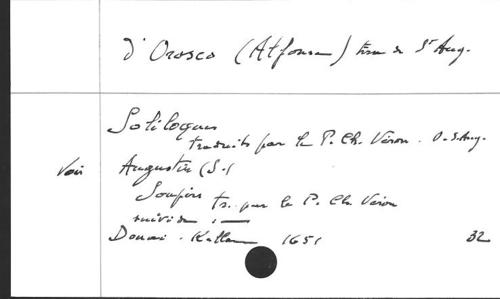 d'Orosco (Alfonse) de St Aug.
Soliloques
traduits par le P. Ch. Véron. O. S. Aug.
Voir Augustin (S.)
Soupirs tr. par le P. Ch. Véron
suivi de : —
Douai. 1651 32